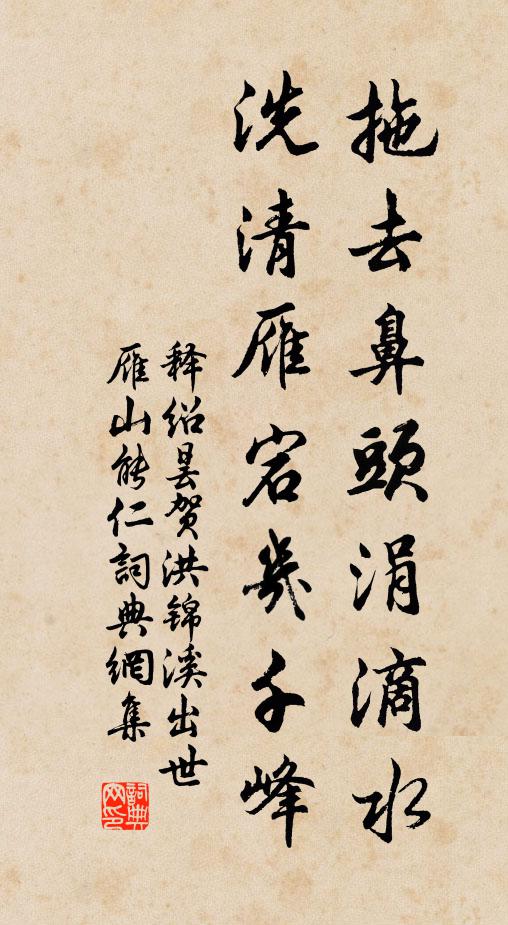 拖去鼻頭涓滴水
洗清雁宕幾千峰
释绍昙贺洪锦溪出世
雁山能仁詞典網集
詞典网印